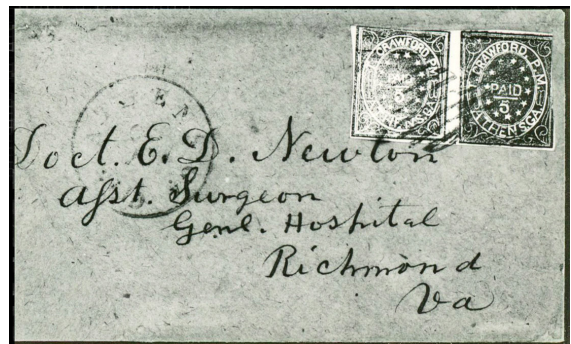 T. CRAWFORD, P.M.
PAID
5
ATHENS, GA.
CRAWFORD, P.M.
5
ATHENS, GA.
Doct. E. D. Newton
Asst. Surgeon
Genl. Hospital
Richmond
Va